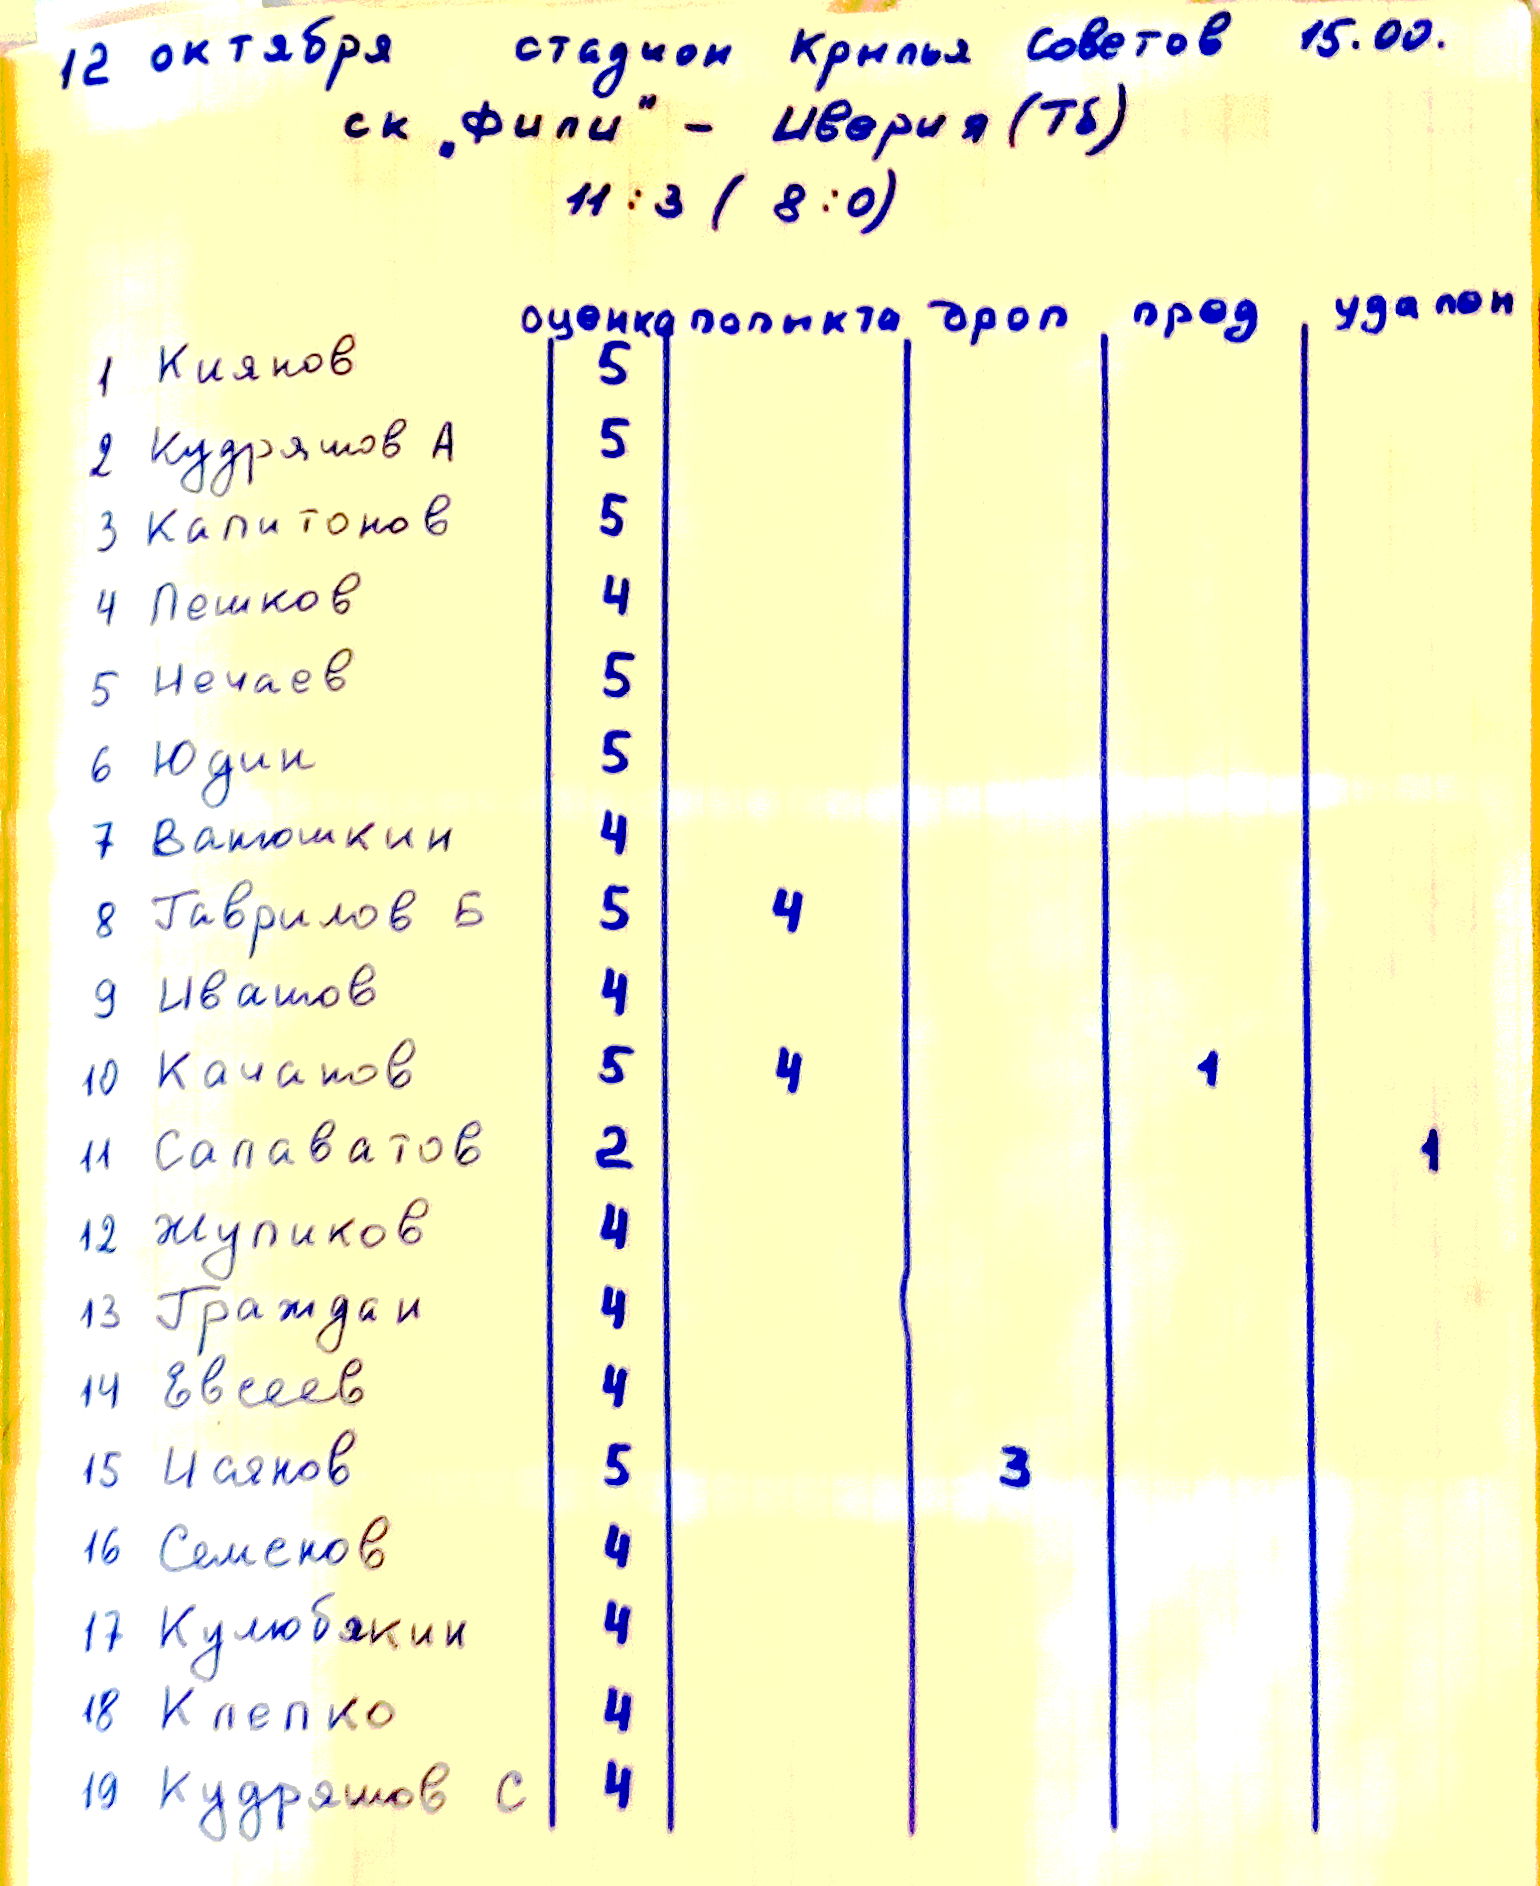 12 октября стадион Крылья Советов 15.00.
ск „Фили" - Иверия (Тб)
11:3 ( 8:0)
оценка попытка дроп пред удален
1 Киянов 5
2 Кудряшов А 5
3 Капитонов 5
4 Лешков 4
5 Нечаев 5
6 Юдин 5
7 Ванюшкин 4
8 Гаврилов Б 5 4
9 Ивашов 4
10 Качанов 5 4 1
11 Салаватов 2 1
12 Жуликов 4
13 Граждан 4
14 Евсеев 4
15 Исянов 5 3
16 Семенов 4
17 Кулюбякин 4
18 Клепко 4
19 Кудряшов С 4